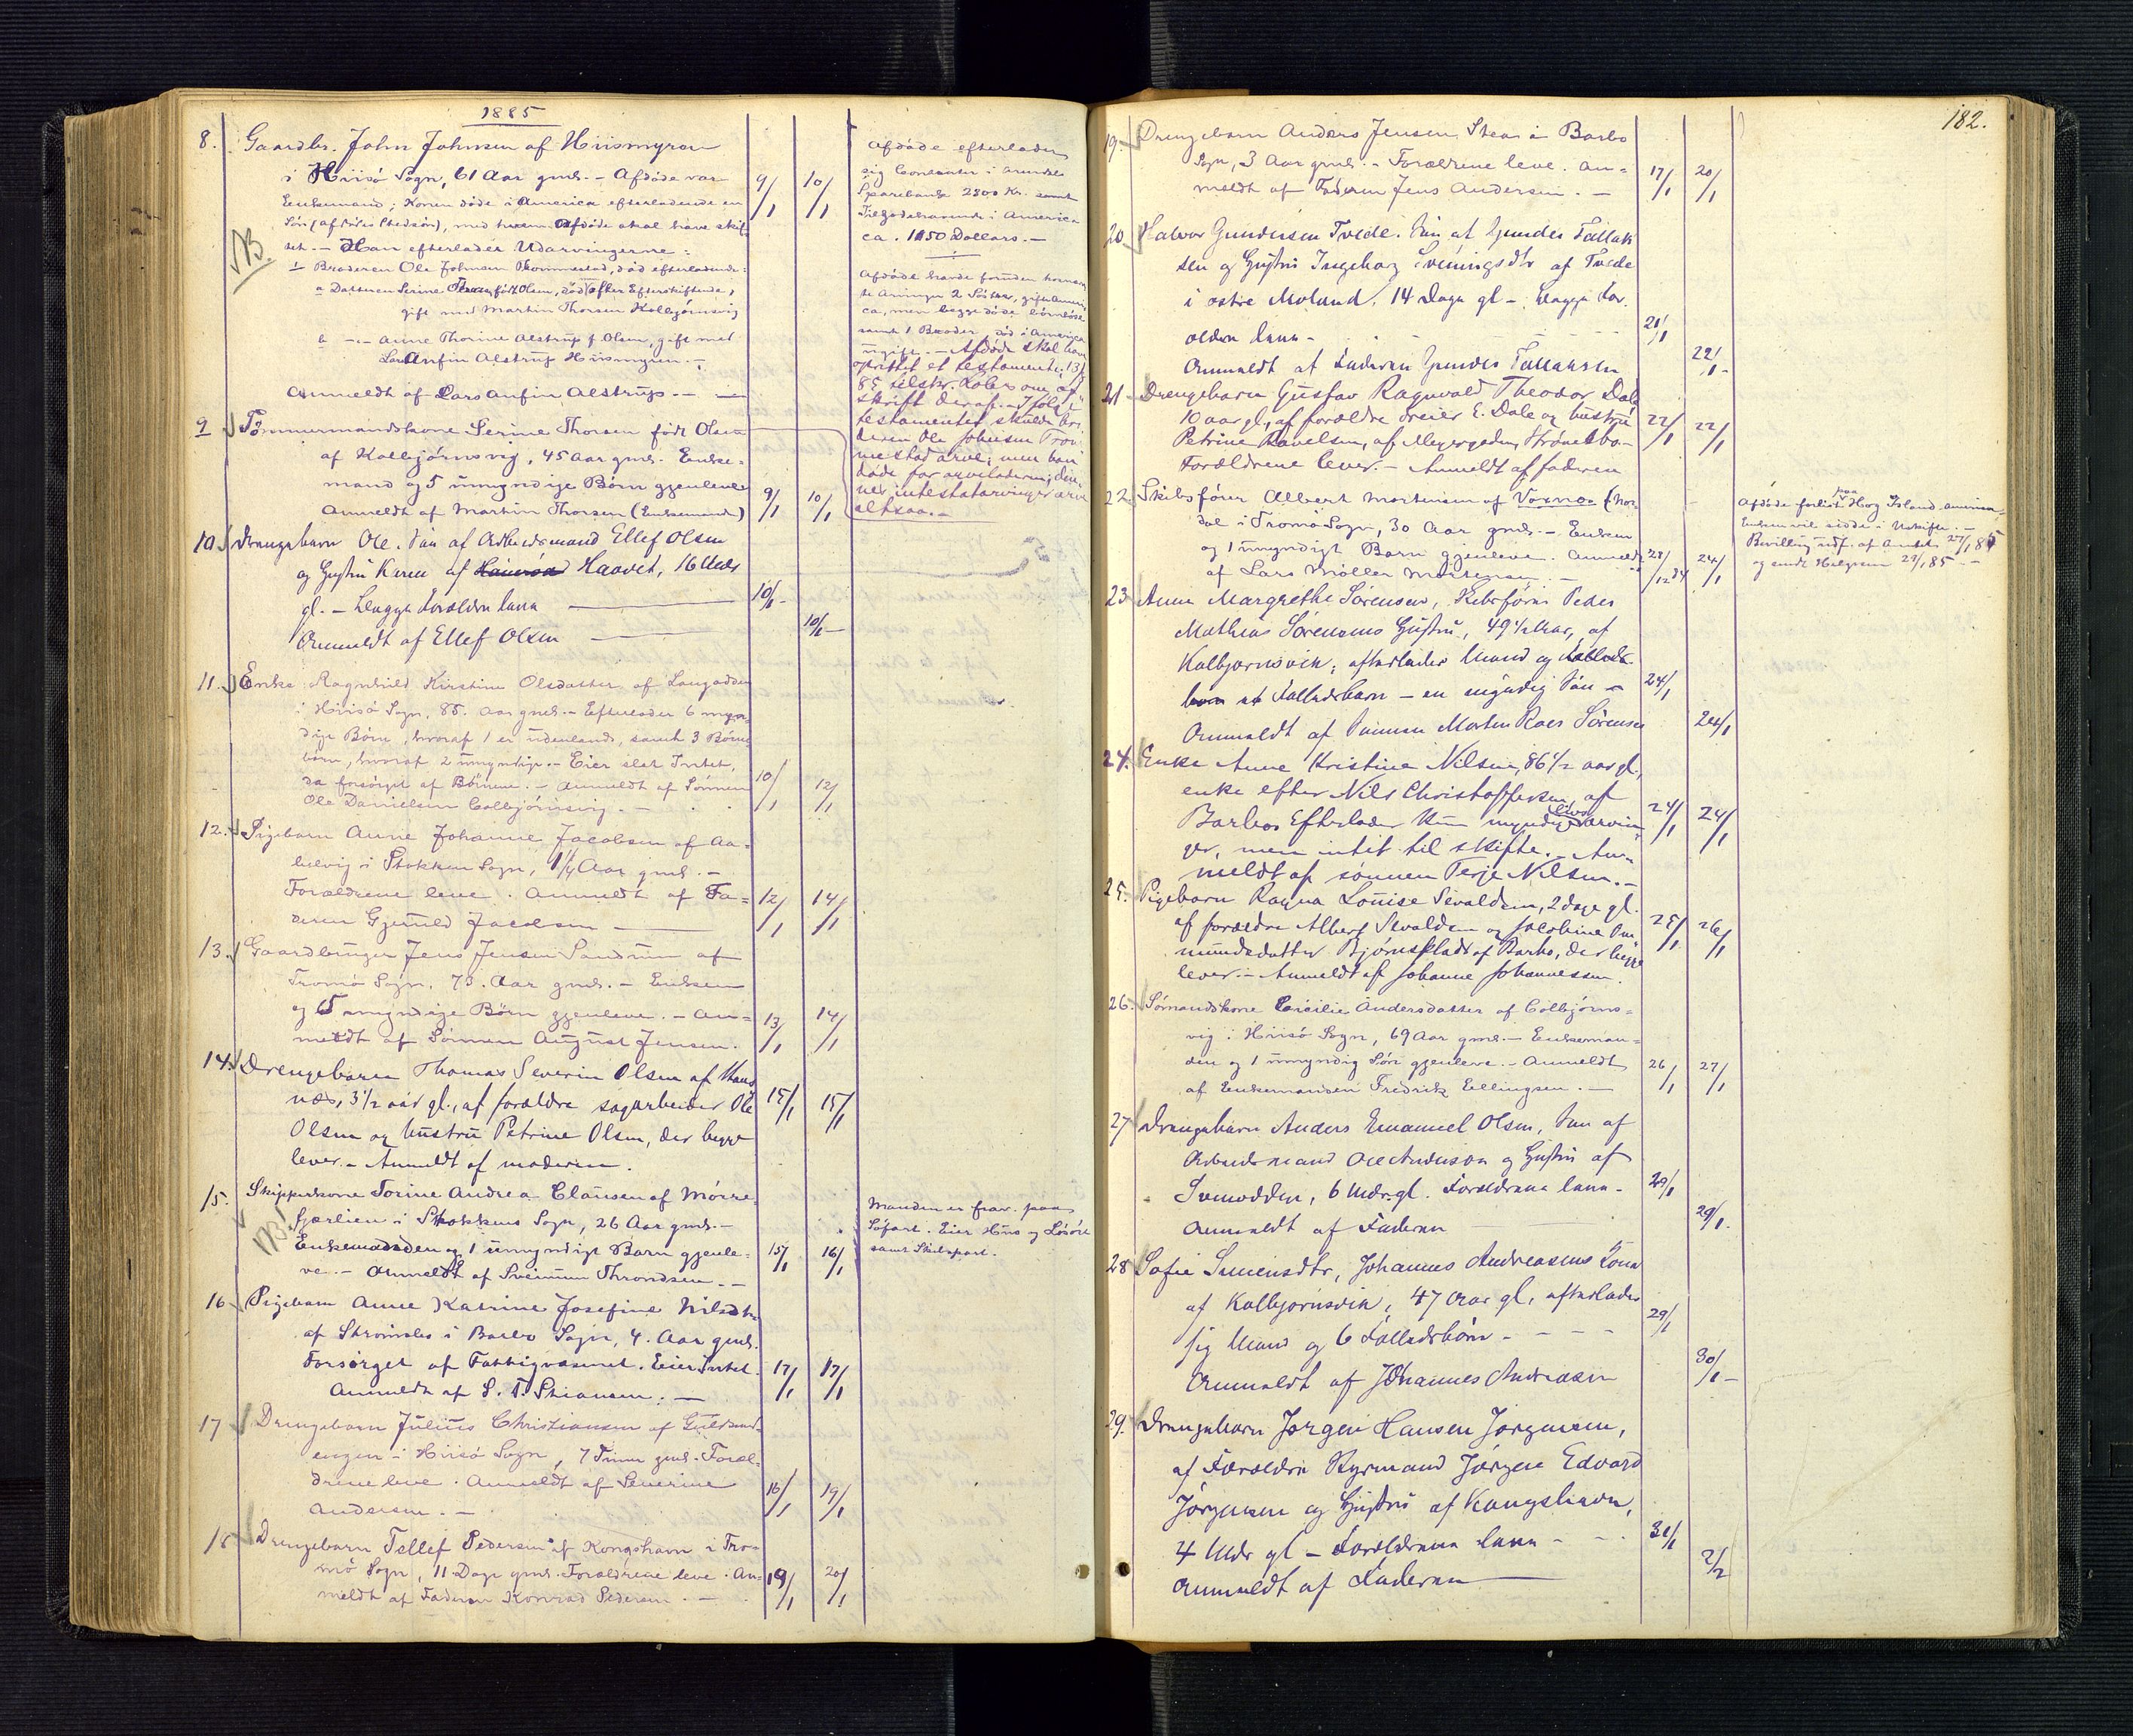 1885
8. Gaardbr. John Johnsen af Hiismyren
i Hiisö Sogn, 61 Aar gml. - Afdöde var
Enkemand; Konen döde i America efterladende en
Sön (afdödes Stedsön), med hvem Afdöde skal have skif-
tet. - Han efterlader Udarvingerne:
1 Broderen Ole Johnsen död efterladende:
a Datteren Serine Thorsen född Olsen, död
gift med Martin Thorsen Kolbjörnsvig
b -"- Anne Thorine Alstrup f. Olsen, gift med
Lars Anfin Alstrup Hiismyren. -
Anmeldt af Lars Anfin Alstrup. -
9/1 10/1
NB.
Afdöde efterlader
sig Contanter i Arendals
Sparebank 2800 Kr. samt
Tilgodehavende i America
ca. 1150 Dollars. -
Afdöde havde foruden
2 Söstre, gift i Ameri
ca, men begge döde barnlöse
samt 1 Broder, död i America
ugift. - Afdöde skal have
oprettet et testamente 13/1
85
skrift deraf. - Ifölge
testamentet skulde bro
deren Ole Johnsen Trom
mestad arve; men han
döde för arveladeren; den
nes intestatarvinger arve
altsaa. -
9 Tömmermandskone Serine Thorsen född Olsen
af Kolbjörnsvig, 45 Aar gml. Enke-
mand og 5 umyndige Börn gjenlever
Anmeldt af Martin Thorsen (Enkemand)
9/1 10/1
10. Drengebarn Ole. Sön af Arbeidsmand Ellef Olsen
og Hustru Karen af Haavet, 16 Uger
gl. - Begge Forældre leve
10/1 -
Anmeldt af Ellef Olsen
10/1 -
11. Enke Ragnhild Kirstine Olsdatter af Langodden
i Hiisö Sogn, 85. Aar gml. - Efterlader 6 myn-
dige Börn, hvoraf 1 er udenlands, samt 3 Börne
börn, hvoraf 2 umyndige. - Eier slet Intet,
da forsörget af Börnene. - Anmeldt af Sönnen
Ole Danielsen Colbjörnsvig. -
10/1 12/1
12. Pigebarn Anne Johanne Jacobsen af Aa-
lilevig i Stokken Sogn, 1 1/4 Aar gml. -
Forældrene leve. Anmeldt af Fa-
deren Gjeruld Jacobsen
12/1 14/1
13. Gaardbruger Jens Jensen Sandum af
Tromö Sogn, 73. Aar gml. - Enken
og 5 myndige Börn gjenleve. - An-
meldt af Sönnen August Jensen.
13/1 14/1
14. Drengebarn Thomas Severin Olsen af
næs, 3 1/2 aar gl., af forældre sagarbeider Ole
Olsen og hustru Petrine Olsen, der begge
lever. - Anmeldt af moderen.
15/1 15/1
15. Skipperkone Torine Andrea Clausen af Mörre
fjærlien i Stokkens Sogn, 26 Aar gml. -
Enkemanden og 1 umyndigt Barn gjenle-
ve. - Anmeldt af Sveinum Throndsen. -
15/1 16/1
NB!
Manden er frav. paa
Söfart. Eier Hus og Lösöre
samt Skibspart.
16 Pigebarn Anne Katrine Josefine Nilsdtr
af Strömsbo i Barbo Sogn, 4. Aar gml.
Forsörget af Fattigvæsenet. Eier Intet.
Anmeldt af S. T. Stiansen. -
17/1 17/1
17 Drengebarn Julius Christiansen af Guldsmed-
engen i Hiisö Sogn, 7 Timer gml. Foræl-
drene leve. Anmeldt af Severine
Andersen. -
16/1 19/1
18 Drengebarn Tellef Pedersen af Kongshavn i Tro-
mö Sogn, 11 Dage gml. Forældrene leve. An-
meldt af Faderen Konrad Pedersen. -
19/1 20/1
182.
19. Drengebarn Anders Jensen Stea i Barbo
Sogn, 3 Aar gml. - Forældrene leve. An-
meldt af Faderen Jens Andersen. -
17/1 20/1
20 Halvor Gundersen Tvede. Sön af Gunder Tallak
sen og Hustru Ingeborg Sveinungsdtr af Tvede
i östre Moland. 14 Dage gl - Begge For
ældre leve -
21/1
Anmeldt af Faderen Gunder Tallaksen
22/1 -
21 Drengebarn Gustav Ragnvald Theodor Dale
10 aar gl, af forældre dreier E. Dale og hustru
Petrine Pavelsen, af Meyergaden, Strömsbo -
Forældrene lever. - Anmeldt af faderen
22/1 22/1
22. Skibsförer Albert Mortensen af Voxnes (Nor-
dal i Tromö Sogn, 30 Aar gml. - Enken
og 1 umyndigt Barn gjenleve. Anmeldt
af Lars Möller Mortensen. -
28/12 84 24/1
Afdöde forliste paa Hog Island America.
Enken vil sidde i Uskifte. -
Bevilling udf. af Amtet 27/1 85
og sendt Helgesen 29/1 85. -
23 Anne Margrethe Sörensen, Skibsförer Peder
Mathias Sörensens Hustru, 49 1/2 Aar, af
Kolbjörnsvik; efterlader Mand og
et Fællesbarn - en myndig Sön -
24/1
Anmeldt af Sönnen Morten Roer Sörensen
24/1
24. Enke Anne Kristine Nilsen, 86 1/2 aar gl.,
enke efter Nils Christoffersen, af
Barbo. Efterlader kun myndige livsarvin
ger, men intet til skifte. - An-
meldt af sönnen Terje Nilsen. -
24/1 24/1
25. Pigebarn Ragna Louise Sevaldsen, 2 dage gl.
af forældre Albert Sevaldsen og Jacobine
mundsdatter Björnsplads af Barbo, der begge
lever. - Anmeldt af Johanne Johannessen.
25/1 26/1
26. Sömandskone Cicilie Andersdatter af Colbjörns-
vig i Hiisö Sogn, 69 Aar gml. - Enkeman-
den og 1 umyndig Sön gjenleve. - Anmeldt
af Enkemanden Fredrik Ellingsen. -
26/1 27/1
27 Drengebarn Anders Emanuel Olsen, Sön af
Arbeidsmand Ole Anderson og Hustru af
Svenodden, 6 Mdr. gl. Forældrene leve -
29/1
Anmeldt af Faderen
29/1.
28 Sofie Simensdtr, Johannes Andreasens Kone
af Kolbjörnsvik, 47 Aar gl, efterlader
sig Mand og 6 Fællesbörn -
29/1
Anmeldt af Johannes Andreasen
30/1 -
29. Drengebarn Jörgen Hansen Jörgensen,
af Forældre Styrmand Jörgen Edvard
Jörgensen og Hustru af Kongshavn,
4 Mdr gl - Forældrene leve -
31/1
Anmeldt af Faderen
2/2